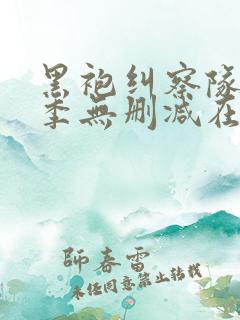 黑袍纠察队
季無删减在
師春雷
未经同意禁止转载